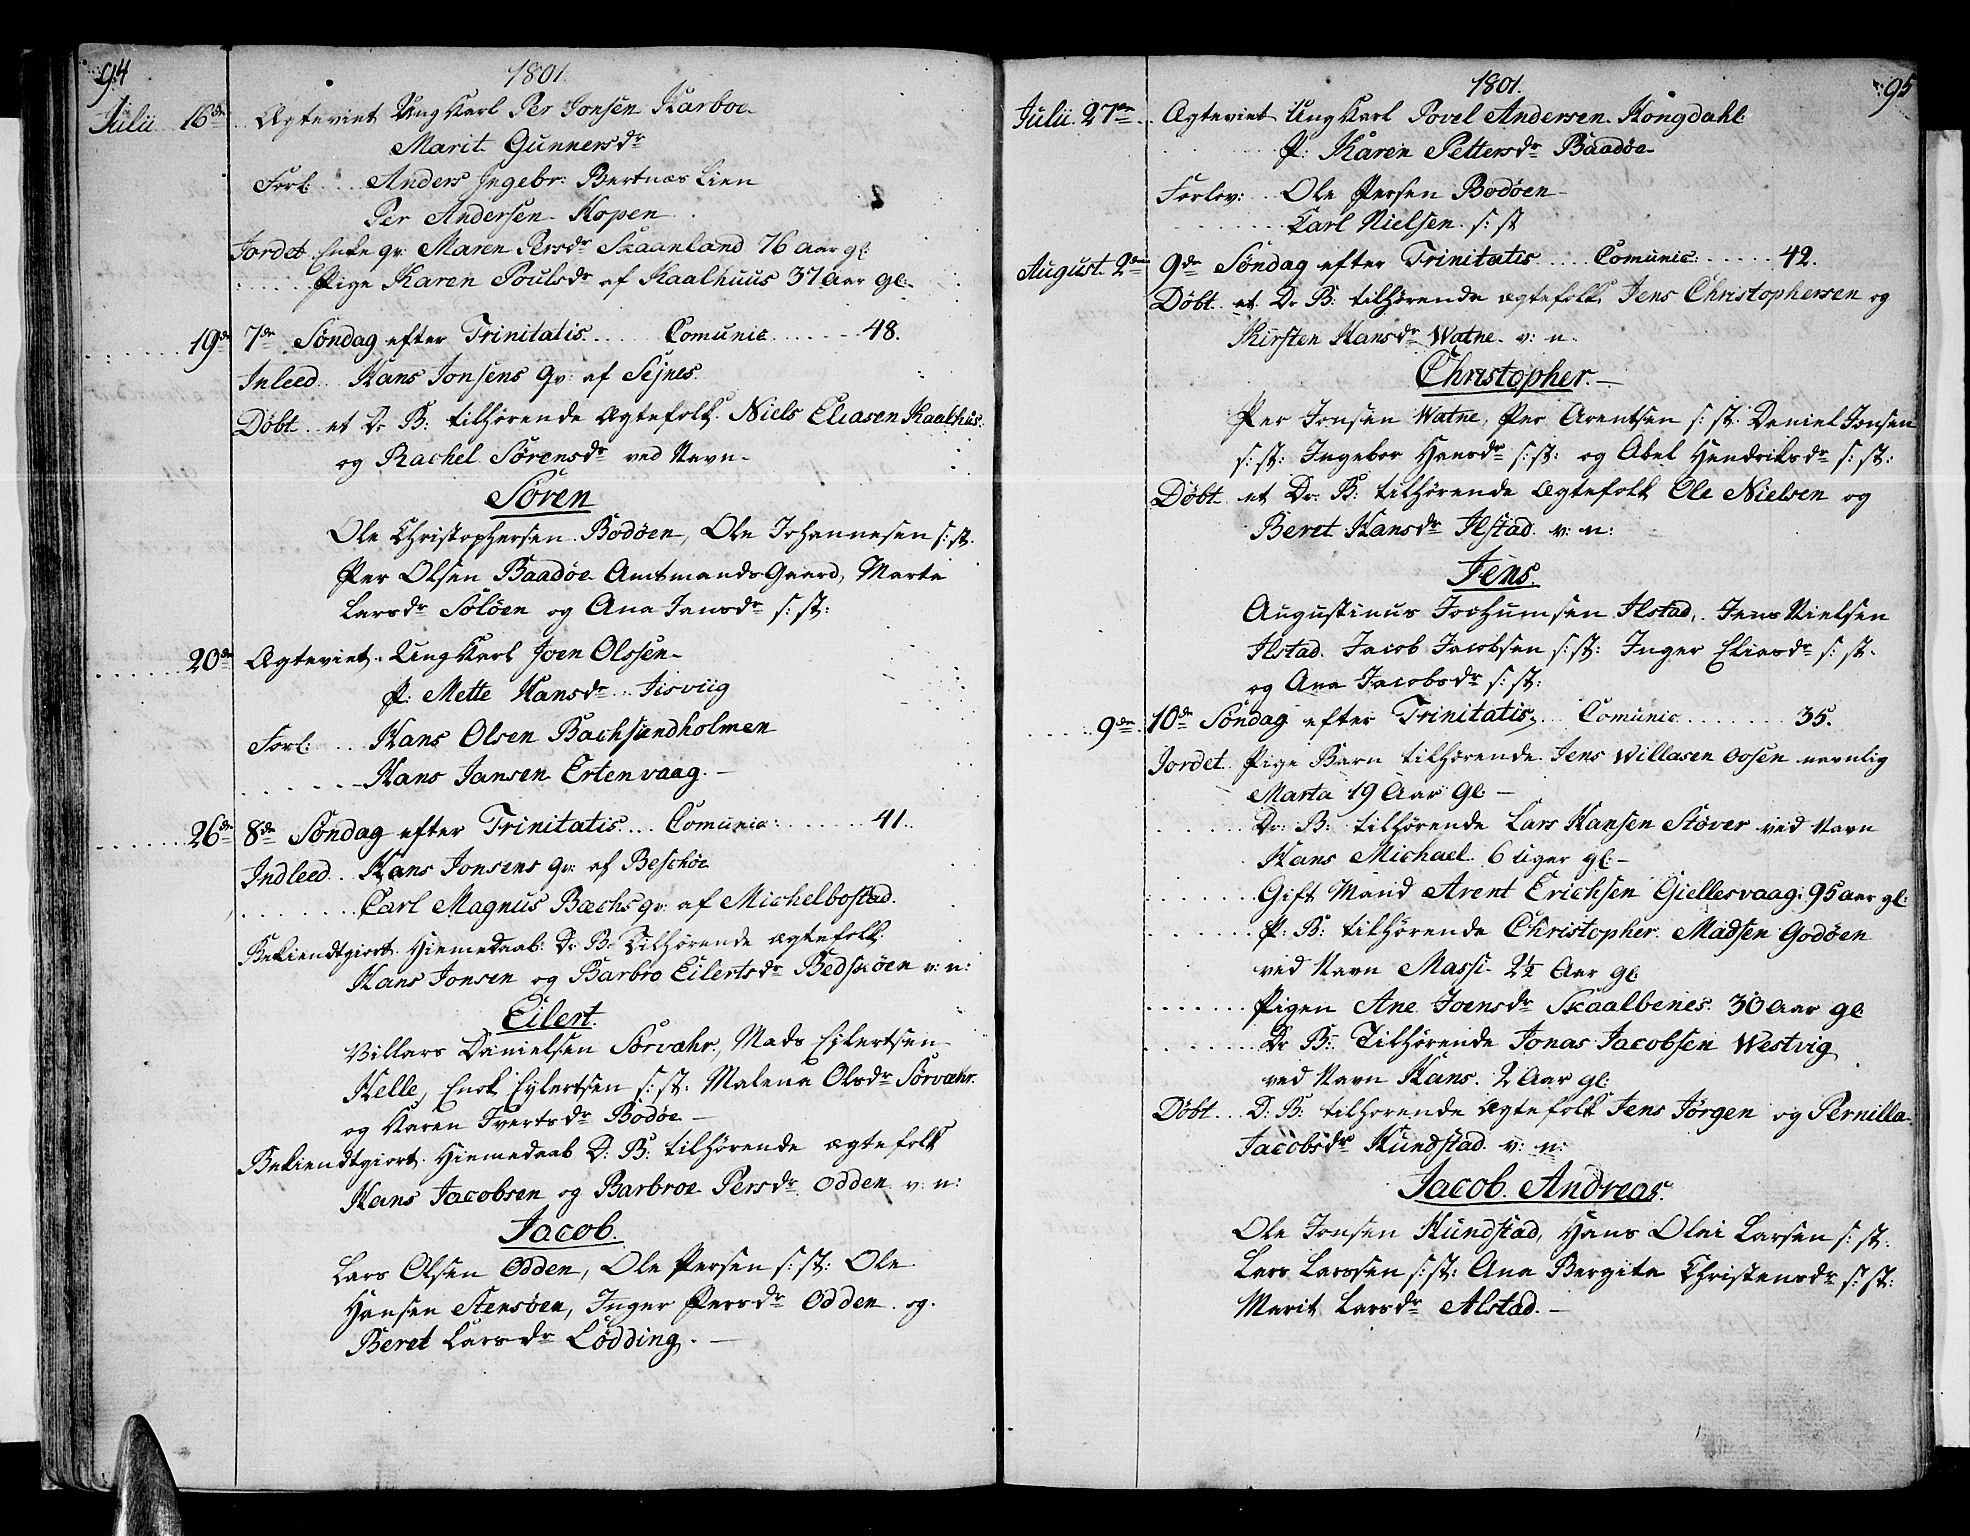 94
1801.
Julii 16de Ægteviet Ung Karl Per Jonsen Karboe
Marit Gunnersdr
Forl: Anders Ingebr: Bertnæs Lien
Per Andersen Hopen
Jordet Enke qv. Maren Persdr Skaanland 76 aar gl:
Pige Karen Poulsdr af Kaalhuus 37 Aar gl:
19de 7de Søndag efter Trinitatis Comunic 48.
Inleed Hans Jonsens qv: af Sejnes
Døbt et Dr. B: tilhørende Ægtefolk Niels Eliasen Kaalhus:
og Rachel Sørensdr ved Navn
Søren
Ole Christophersen Bodøen, Ole Johannesen s: st.
Per Olsen Baadøe Amtmands Gaard, Marta
Larsdr Soløen og Ana Jansdr s: st:
20de Ægteviet Ung Karl Joen Olssen
P: Mette Hansdr Jisviig
Forl: Hans Olsen Bachsundholmen
Hans Jansen Ertenvaag.
26de 8de Søndag efter Trinitatis Comunic: 41.
Indleed Hans Jonsens qv: af Beschøe
Carl Magnus Bæchs qv: af Michelbostad.
Bekiendtgiort Hiemedaab: D: B: Tilhørende ægtefolk
Hans Jonsen og Barbro Eilertsdr Bedsuøen v: n:
Eilert.
Villars Danielsen Sørvahr, Mads Eilertsen
Kelle, Enok Eylertsen s: st: Malena Olsdr Sørvahr.
og Karen Ivertsdr Bodøe
Bekiendtgiort Hiemedaab D: B: tilhørende ægtefolk
Hans Jacobsen og Barbroe Persdr Odden v: n:
Jacob.
Lars Olsen Odden, Ole Persen s: st: Ole
Hansen Stensøen, Inger Persdr Odden og
Beret Larsdr Lødding.
95
1801.
Julii 27de Ægteviet Ung Karl Povel Andersen Kongdahl
P: Karen Pettersdr Baadøe
Forlov: Ole Persen Bodøen
Carl Nielsen s: st
August 2de 9de Søndag efter Trinitatis Comunic: 42.
Døbt et Dr B: tilhørende ægtefolk Jens Christophersen og
Kirsten Hansdr Watne v: n.
Christopher.
Per Jonsen Watne, Per Arentsen s: st: Daniel Jonsen
s: st: Ingebor Hansdr s: st: og Abel Hendriksdr s: st:
Døbt et Dr: B: tilhørende Ægtefolk Ole Nielsen og
Beret Hansdr Ilstad v: n:
Jens.
Augustinus Jochumsen Ilstad, Jens Nielsen
Ilstad. Jacob Jacobsen s: st: Inger Eliasdr s: st.
og Ana Jacobsdr s: st:
9de 10de Søndag efter Trinitatis, Comunic 35.
Jordet Pige Barn tilhørende Jens Willasen Oosen navnlig
Marta 19 Aar gl:
Dr: B: tilhørende Lars Hansen Støver ved Navn
Hans Michael 6 uger gl:
Gift Mand Arent Erichsen Giellesvaag 95 aar gl:
P: B: tilhørende Christopher Madsen Godøen
ved Navn Massi 2½ Aar gl:
Pigen Ane Joensdr Skaalbenes 30 Aar gl:
Dr B: Tilhørende Jonas Jacobsen Westvig
ved Navn Hans. 2 Aar gl:
Døbt D: B: tilhørende Ægtefolk Jens Jørgen og Pernilla
Jacobsdr Kundstad v: n:
Jacob Andreas.
Ole Jonsen Kundstad, Hans Olai Larsen s: st.
Lars Larssen s: st: Ana Bergita Christensdr s: st:
Marit Larsdr Alstad.